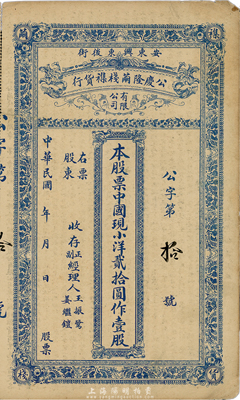 安東興東後街
公慶隆繭棧襍貨行
有限公司
公字第拾號
本股票中國現小洋貳拾圓作壹股
右票
股東
收存
正經理人王振鷺
副 姜繼鑓
中華民國 年 月 日 股票
繭
襍
棧
貨